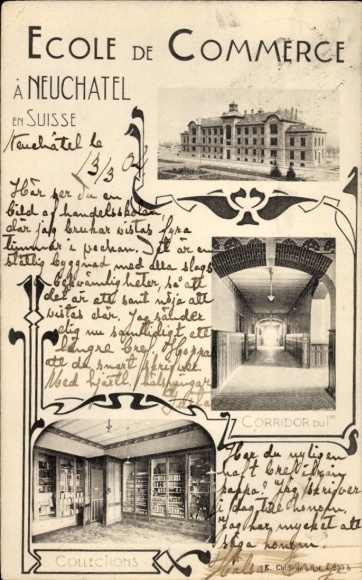 ECOLE DE COMMERCE
À NEUCHATEL
EN SUISSE
Neuchâtel le
13/3 04
Här ser du en
bild af handelsskolan,
där jag brukar vistas fyra
timmar i veckan. Det är en
ståtlig byggnad med alla slags
bekvämligheter, så att
det är ett sant nöje att
vistas där. Jag sänder
dig nu samtidigt ett
längre bref. Hoppas
att du snart skrifver.
Med hjärtl. hälsningar
CORRIDOR DU 1er
Har du nyligen
haft bref ifrån
pappa? Jag skrifver
i dag till honom.
Jag har mycket att
säga honom.
Hälsa
COLLECTIONS